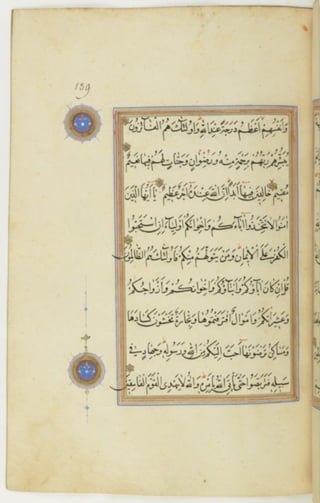 159
وَأَنفُسِهِمْ أَعْظَمُ دَرَجَةً عِندَ اللَّهِ وَأُولَٰئِكَ هُمُ الْفَائِزُونَ
يُبَشِّرُهُمْ رَبُّهُم بِرَحْمَةٍ مِّنْهُ وَرِضْوَانٍ وَجَنَّاتٍ لَّهُمْ فِيهَا نَعِيمٌ
مُّقِيمٌ خَالِدِينَ فِيهَا أَبَدًا إِنَّ اللَّهَ عِندَهُ أَجْرٌ عَظِيمٌ يَا أَيُّهَا الَّذِينَ
آمَنُوا لَا تَتَّخِذُوا آبَاءَكُمْ وَإِخْوَانَكُمْ أَوْلِيَاءَ إِنِ اسْتَحَبُّوا
الْكُفْرَ عَلَى الْإِيمَانِ وَمَن يَتَوَلَّهُم مِّنكُمْ فَأُولَٰئِكَ هُمُ الظَّالِمُونَ
قُلْ إِن كَانَ آبَاؤُكُمْ وَأَبْنَاؤُكُمْ وَإِخْوَانُكُمْ وَأَزْوَاجُكُمْ
وَعَشِيرَتُكُمْ وَأَمْوَالٌ اقْتَرَفْتُمُوهَا وَتِجَارَةٌ تَخْشَوْنَ كَسَادَهَا
وَمَسَاكِنُ تَرْضَوْنَهَا أَحَبَّ إِلَيْكُم مِّنَ اللَّهِ وَرَسُولِهِ وَجِهَادٍ فِي
سَبِيلِهِ فَتَرَبَّصُوا حَتَّىٰ يَأْتِيَ اللَّهُ بِأَمْرِهِ وَاللَّهُ لَا يَهْدِي الْقَوْمَ الْفَاسِقِينَ